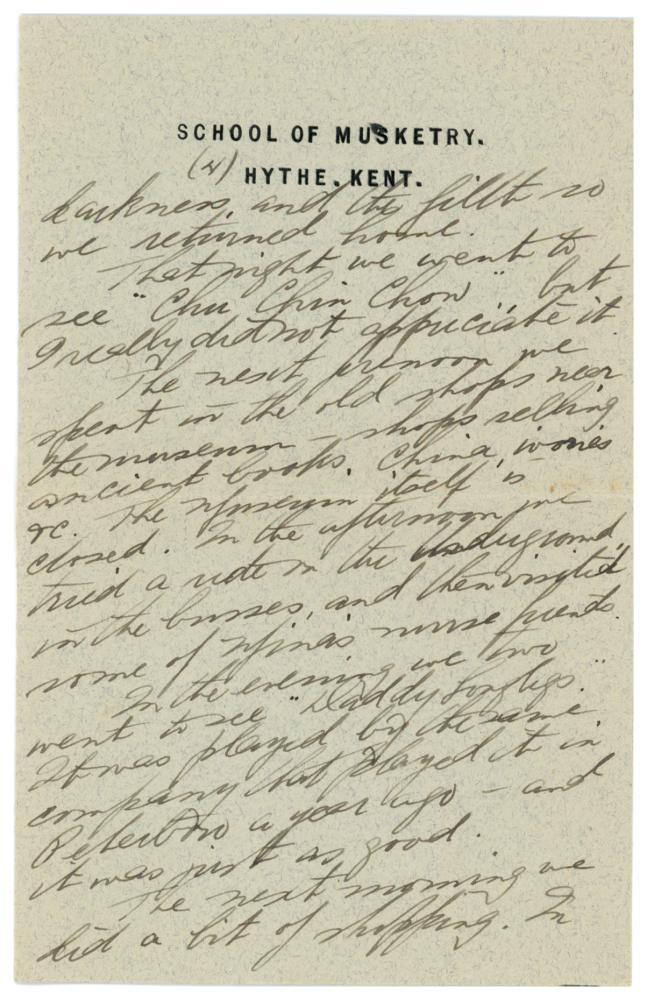 SCHOOL OF MUSKETRY.
(4)
HYTHE. KENT.
darkness, and the filth so
we returned home.
That night we went to
see "Chu Chin Chow" but
I really did not appreciate it
The next forenoon we
spent in the old shops near
the museum - shops selling
ancient books, China, ivories
&c. The Museum itself is
closed. In the afternoon we
tried a ride in the underground,
in the busses, and then visited
some of Mina's nurse friends.
In the evening we two
went to see "Daddy Longlegs."
It was played by the same
company that played it in
Peterboro a year ago - and
it was just as good.
The next morning we
did a bit of shopping. In